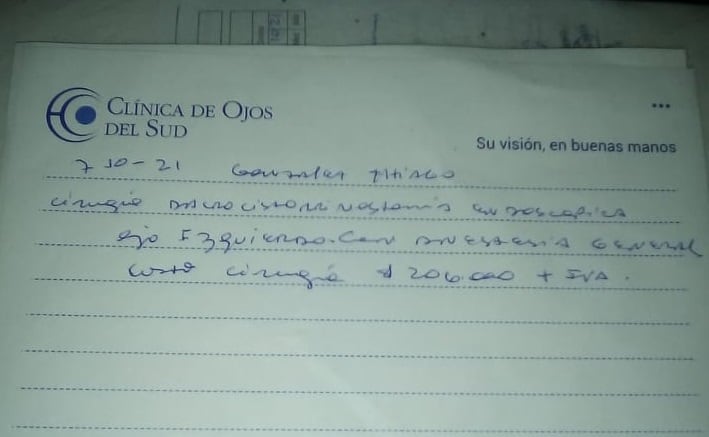 CLÍNICA DE OJOS
DEL SUD
Su visión, en buenas manos
7 10-21 Gonzalez Thiago
cirugía DACROCISTORRINOSTOMIA ENDOSCOPICA
ojo IZQUIERDO. CON ANESTESIA GENERAL
Costo cirugía $ 206.000 + IVA.